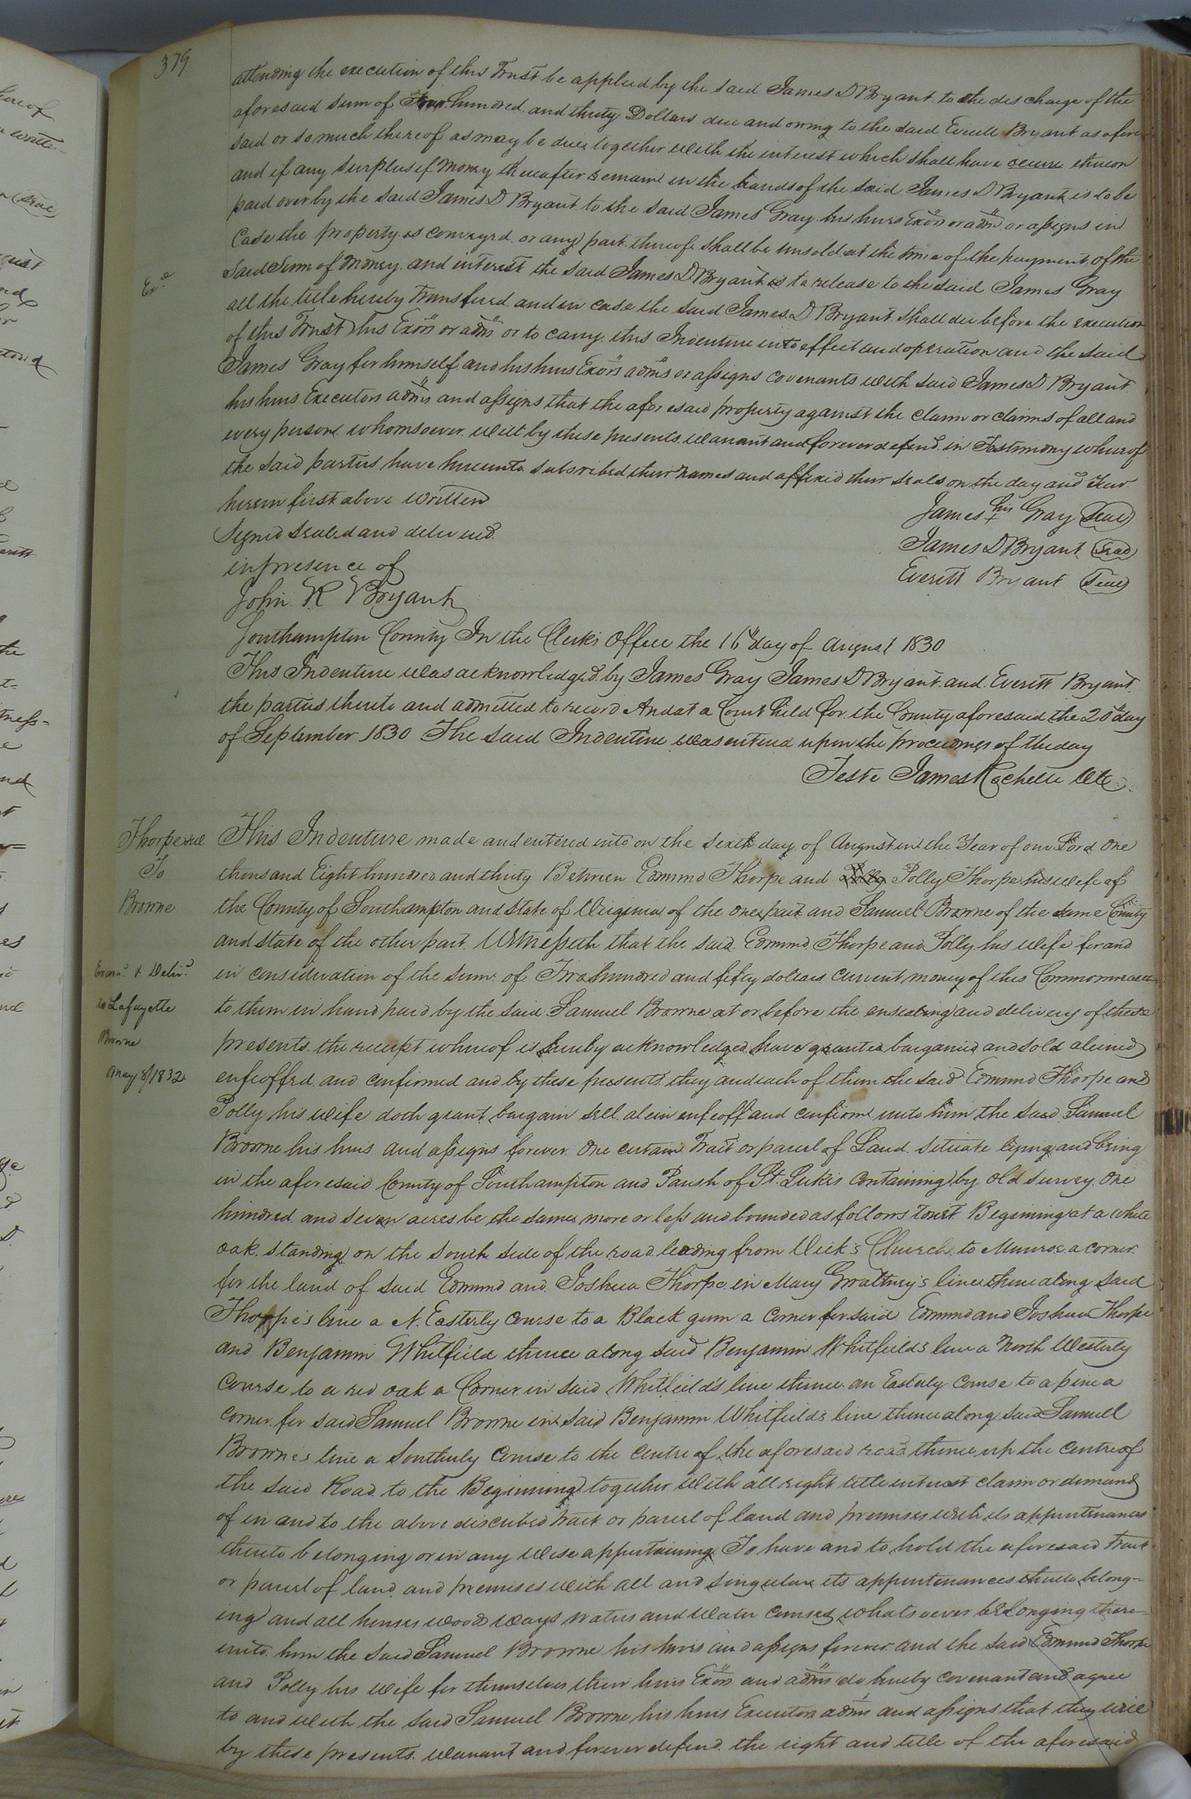 379.
attending the execution of this Trust be applied by the said James D Bryant to the discharge of the
aforesaid sum of hundred and thirty Dollars due and owing to the said Everett Bryant as afore
said or so much thereof as may be due together with the interest which shall have accrue thereon
and if any surplus if money thereafter remain in the hands of the said James D Bryant is to be
paid over by the said James D Bryant to the said James Gray his heirs Exors or adms or assigns in
Case the property as conveyed or any part thereof shall be unsold at the time of the payment of the
Exd
said sum of money and interest the said James D Bryant is to release to the said James Gray
all the title hereby transfered and in case the said James D Bryant shall die before the execution
of this Trust his Exors or adms or to carry this Indenture into effect and operation and the said
James Gray for himself and his heirs Exors adms or assigns covenants with said James D Bryant
his heirs Executors adms and assigns that the aforesaid property against the claim or claims of all and
every person whomsoever will by these presents warrant and forever defend in Testimony whereof
the said parties have hereunto subscribed their names and affixed their seals on the day and Year
herein first above written
Signed sealed and delivered
in presence of
John R Bryant
James his + Gray Seal
James D Bryant Seal
Everitt Bryant Seal
Southampton County In the Clerks Office the 16th day of August 1830
This Indenture was acknowledged by James Gray James D Bryant and Everitt Bryant
the parties thereto and admitted to record And at a Court held for the County aforesaid the 20th day
of September 1830 The said Indenture was entered upon the proceedings of the day
Teste James Rochelle Clk
Thorpe &ux
To
Browne
Examd & Delivd
to Lafayette
Browne
May 8/1832
This Indenture made and entered into on the sixth day of August in the Year of our Lord One
thousand Eight hundred and thirty Between Edmund Thorpe and Polly Thorpe his wife of
the County of Southampton and State of Virginia of the one part and Samuel Browne of the same County
and State of the other part Witnesseth that the said Edmund Thorpe and Polly his wife for and
in consideration of the sum of Two hundred and fifty dollars current money of this Commonwealth
to them in hand paid by the said Samuel Browne at or before the ensealing and delivery of these
presents the receipt whereof is hereby acknowledged have granted bargained and sold aliened
enfeoffed and confirmed and by these presents they and each of them the said Edmund Thorpe and
Polly his wife doth grant bargain sell alein enfeoff and confirm unto him the said Samuel
Browne his heirs and assigns forever One certain Tract or parcel of Land situate lying and being
in the aforesaid County of Southampton and Parish of St. Lukes containing by old survey One
hundred and seven acres be the same more or less and bounded as follows towit Begining at a white
oak standing on the south side of the road leading from Vick's Church to Munroe a corner
for the land of said Edmund and Joshua Thorpe in Mary Gwaltney's line thence along said
Thorpe's line a N. Easterly course to a Black gum a corner for said Edmund and Joshua Thorpe
and Benjamin Whitfield thence along said Benjamin Whitfields line a North Westerly
course to a red oak a Corner in said Whitfeild's line thence an Easterly course to a pine a
corner for said Samuel Browne in said Benjamin Whitfields line thence along said Samuel
Brownes line a Southerly course to the centre of the aforesaid road thence up the centre of
the said Road to the Beginning together with all right title interest claim or demand
of in and to the above discribed tract or parcel of land and premises with its appurtenances
thereto belonging or in any wise appertaining To have and to hold the aforesaid tract
or parcel of land and premises with all and singular its appurtenances thereto belong-
ing and all houses woods ways waters and water courses whatsoever belonging there
unto him the said Samuel Browne his heirs and assigns forever and the said Edmund Thorpe
and Polly his wife for themselves their heirs Exors and adms do hereby covenant and agree
to and with the said Samuel Browne his heirs Executors adms and assigns that they will
by these presents warrant and forever defend the right and title of the aforesaid